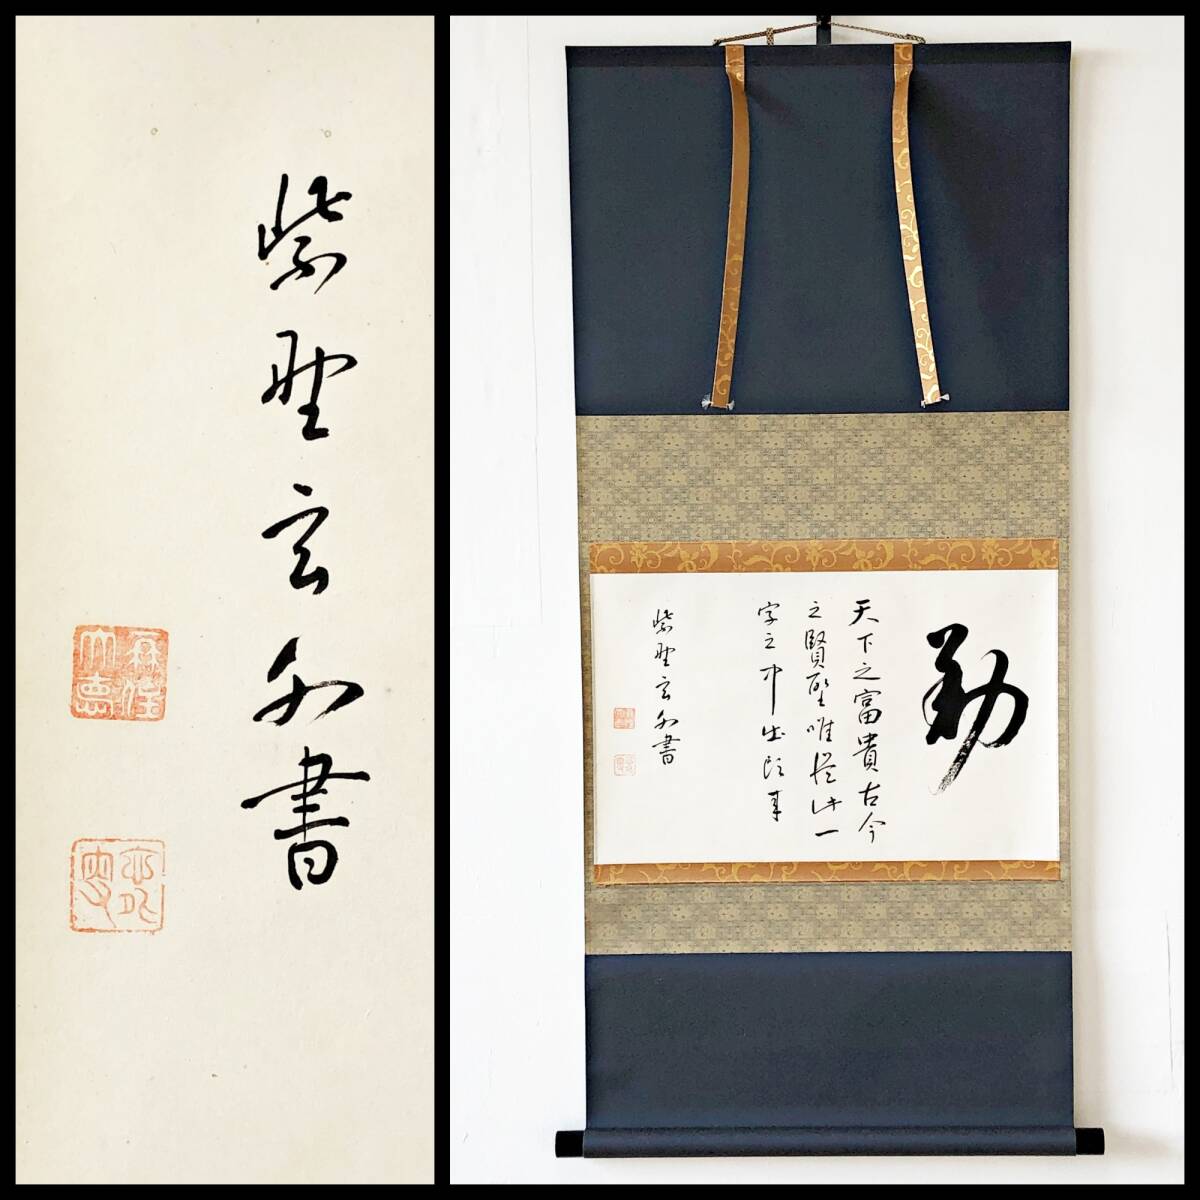 紫野玄外書
勤
天下之富貴古今
之賢聖唯従此一
字之中出頭来
紫野玄外書